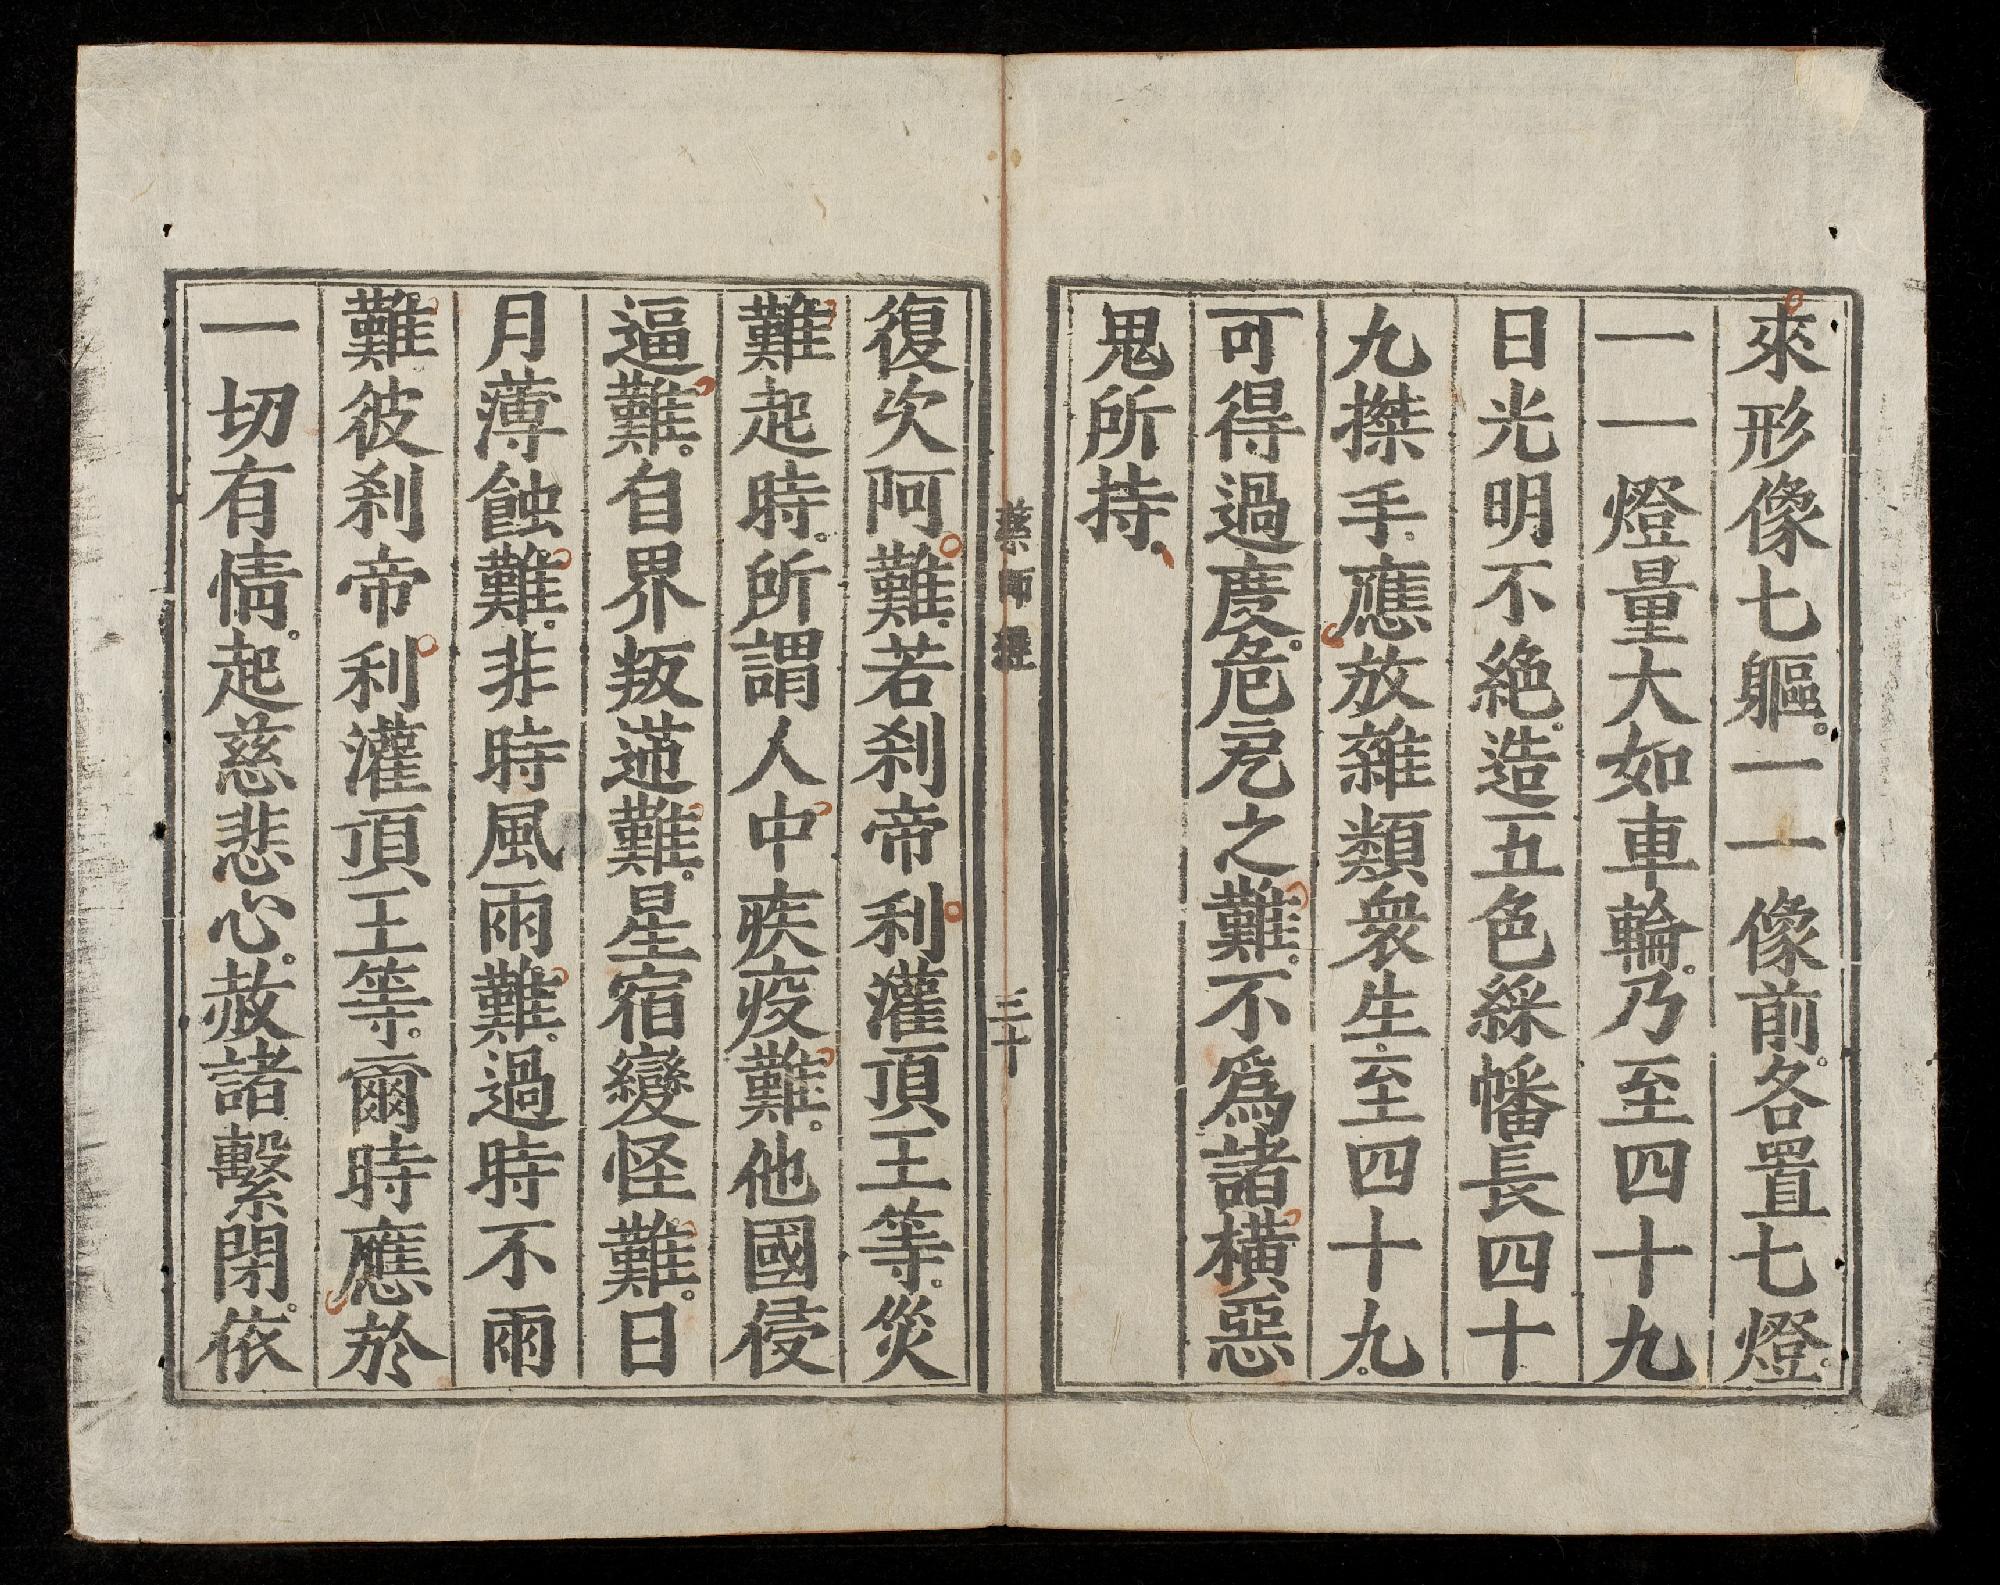 來形像七軀。一一像前。各置七燈。
一一燈量大如車輪。乃至四十九
日光明不絶。造五色綵幡長四十
九搩手。應放雜類衆生。至四十九。
可得過度危厄之難。不爲諸橫惡
鬼所持。
藥師經
三十
復次阿難。若刹帝利灌頂王等。災
難起時。所謂人中疾疫難。他國侵
逼難。自界叛逆難。星宿變怪難。日
月薄蝕難。非時風雨難。過時不雨
難。彼刹帝利灌頂王等。爾時應於
一切有情。起慈悲心。赦諸繫閉。依